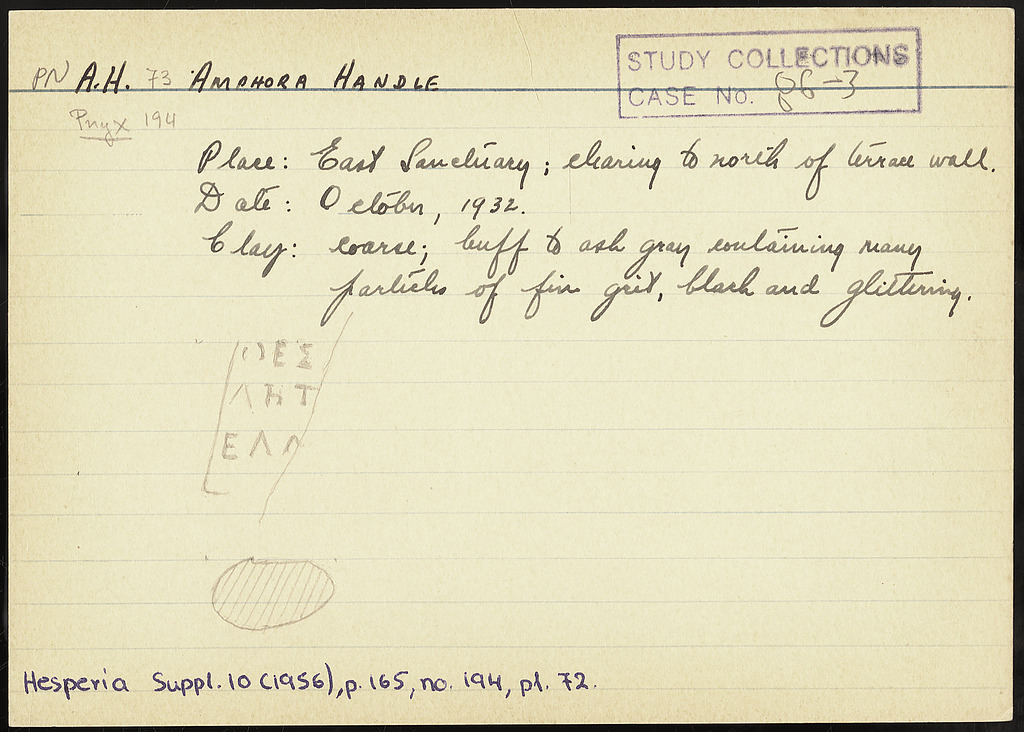 PN A.H. 73 AMPHORA HANDLE
STUDY COLLECTIONS
CASE No. PG-3
Pnyx 194
Place: East Sanctuary; clearing to north of terrace wall.
Date: October, 1932.
Clay: coarse; buff to ash gray containing many
particles of fine grit, black and glittering.
ΕΣ
ΛΗΤ
ΕΛΛ
Hesperia Suppl. 10 (1956), p. 165, no. 194, pl. 72.